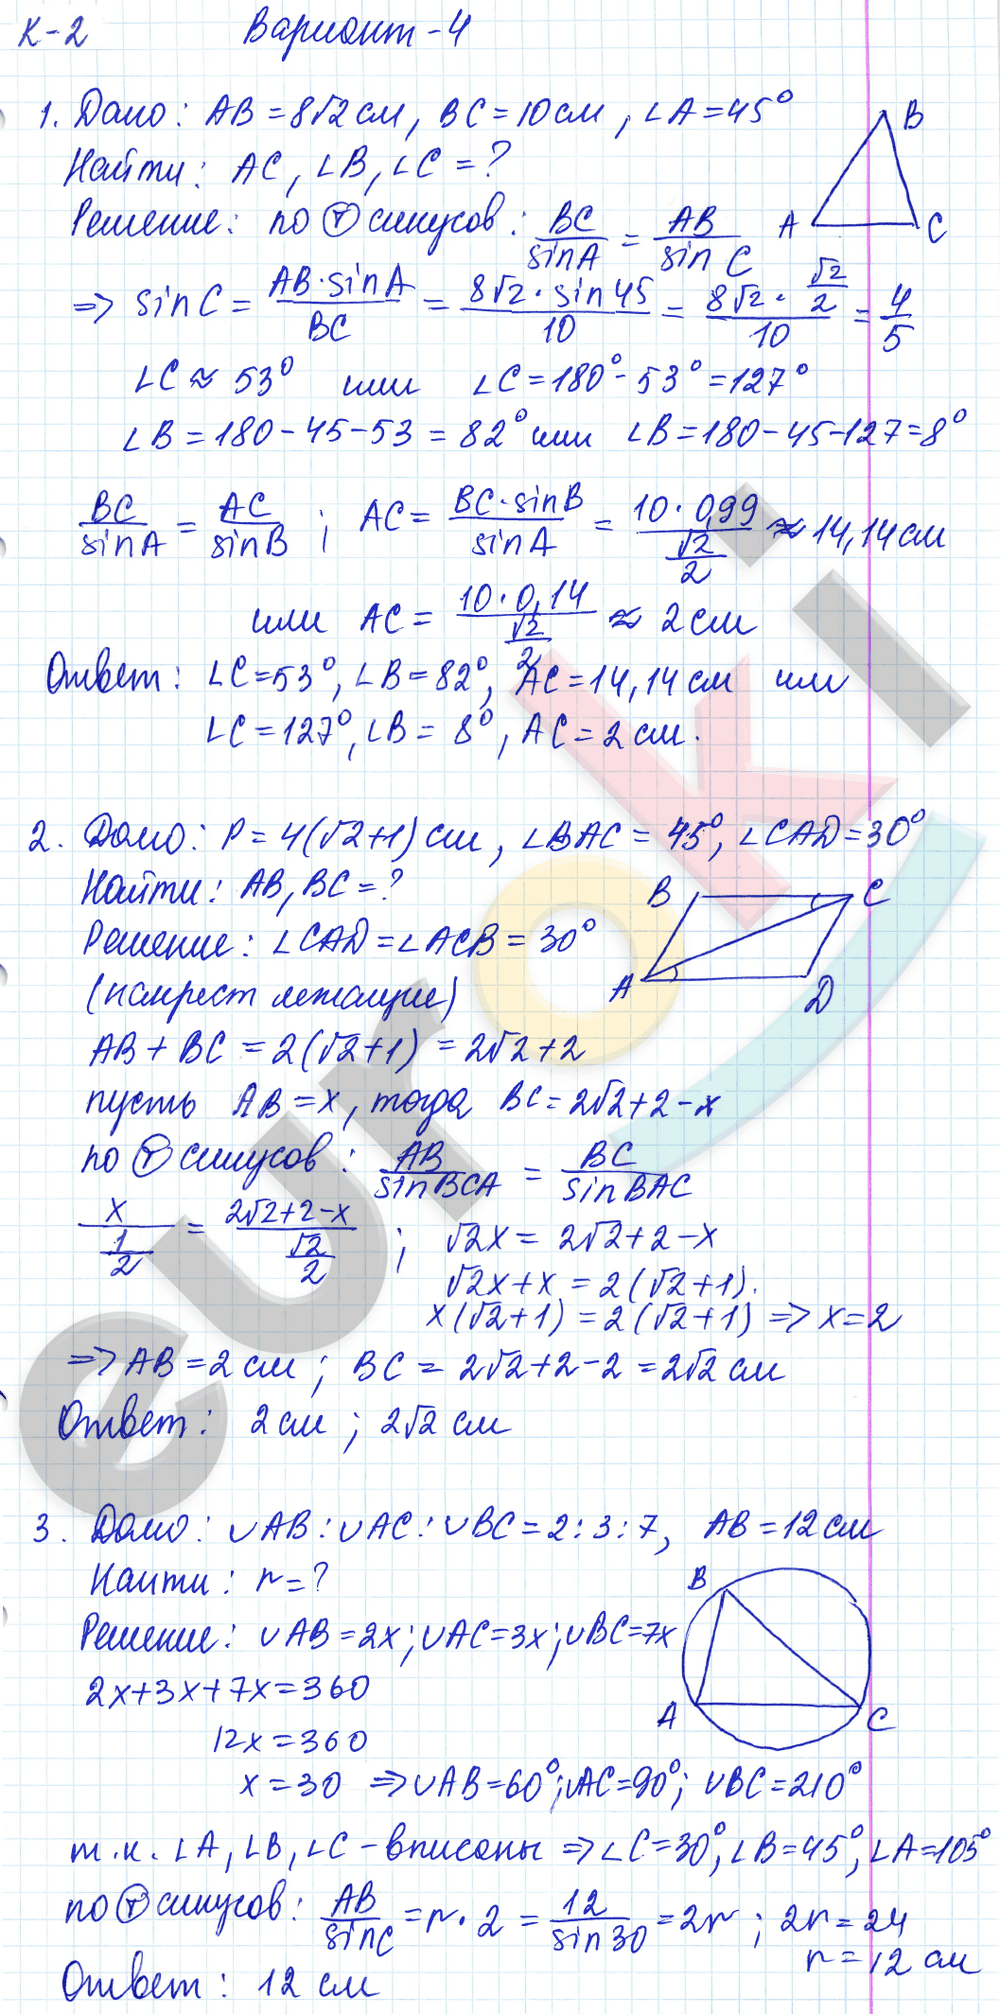 К-2 Вариант-4
1. Дано: AB = 8√2 см, BC = 10 см, ∠A = 45°
Найти: AC, ∠B, ∠C = ?
Решение: по Ⓣ синусов: BC/sinA = AB/sin C
B
A C
=> sinC = AB·sinA/BC = 8√2·sin45/10 = 8√2·√2/2/10 = 4/5
∠C ≈ 53° или ∠C = 180° - 53° = 127°
∠B = 180 - 45 - 53 = 82° или ∠B = 180 - 45 - 127 = 8°
BC/sinA = AC/sinB ; AC = BC·sinB/sinA = 10·0,99/(√2/2) ≈ 14,14 см
или AC = 10·0,14/(√2/2) ≈ 2 см
Ответ: ∠C = 53°, ∠B = 82°, AC = 14,14 см или
∠C = 127°, ∠B = 8°, AC = 2 см.
2. Дано: P = 4(√2+1) см, ∠BAC = 45°, ∠CAD = 30°
Найти: AB, BC = ?
B C
Решение: ∠CAD = ∠ACB = 30°
A D
(накрест лежащие)
AB + BC = 2(√2+1) = 2√2+2
пусть AB = x, тогда BC = 2√2+2-x
по Ⓣ синусов: AB/sinBCA = BC/sinBAC
x/(1/2) = 2√2+2-x/(√2/2) ; √2x = 2√2+2-x
√2x+x = 2(√2+1).
x(√2+1) = 2(√2+1) => x=2
=> AB = 2 см ; BC = 2√2+2-2 = 2√2 см
Ответ: 2 см ; 2√2 см
3. Дано: ∪AB:∪AC:∪BC = 2:3:7, AB = 12 см
Найти: r = ?
B
Решение: ∪AB = 2x; ∪AC = 3x; ∪BC = 7x
2x+3x+7x = 360
A C
12x = 360
x = 30 => ∪AB = 60°; ∪AC = 90°; ∪BC = 210°
т.к. ∠A, ∠B, ∠C - вписаны => ∠C = 30°, ∠B = 45°, ∠A = 105°
по Ⓣ синусов: AB/sinC = r·2 = 12/sin30 = 2r ; 2r = 24
r = 12 см
Ответ: 12 см
euroki